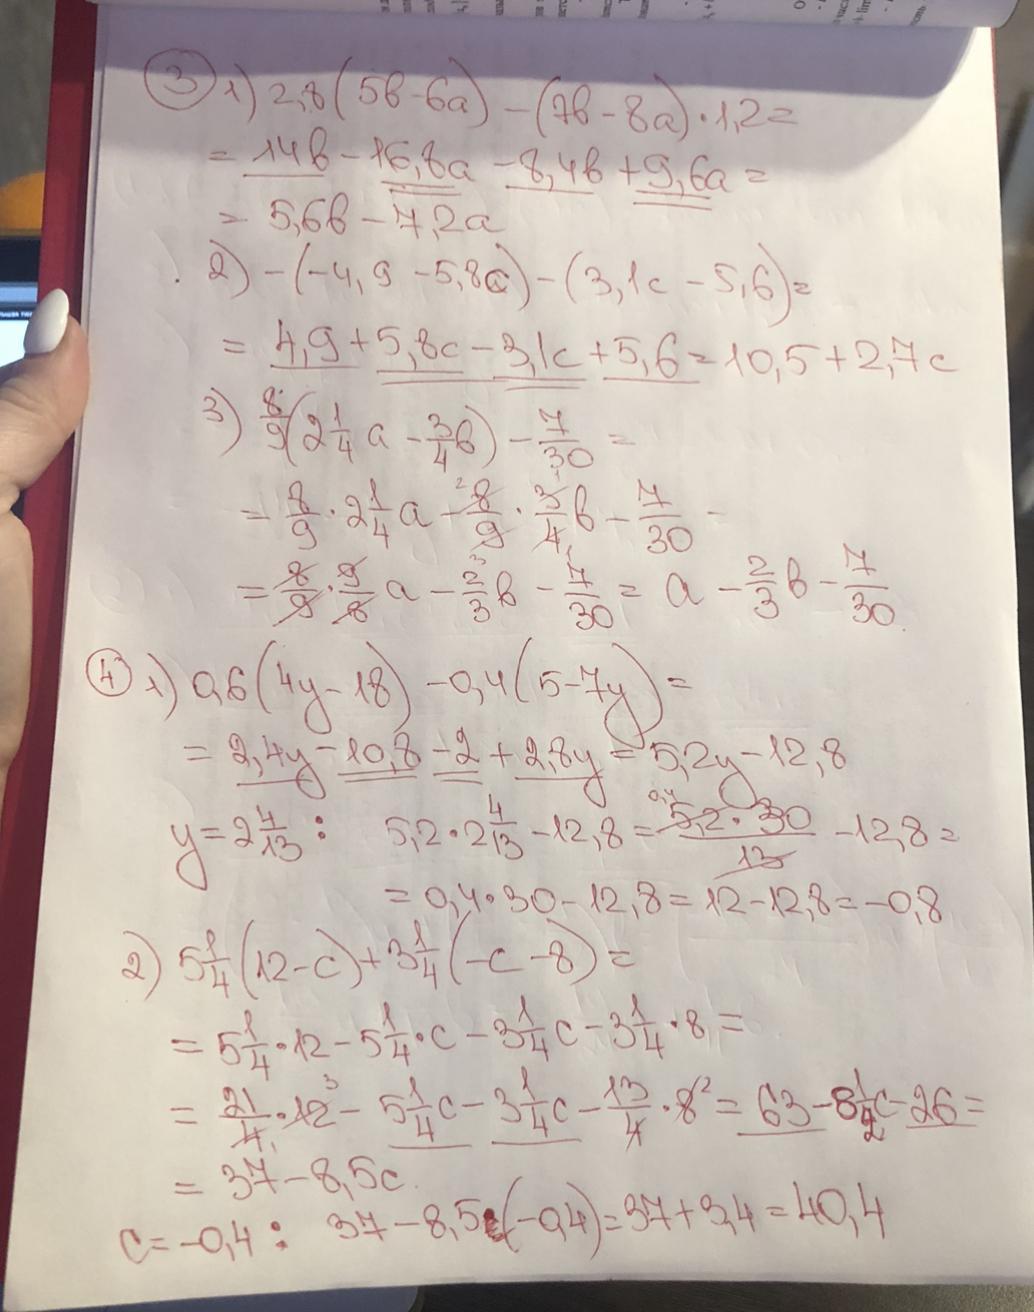 ③ 1) 2,8(5b - 6a) - (7b - 8a)·1,2 =
= 14b - 16,8a - 8,4b + 9,6a =
= 5,6b - 7,2a
2) -(-4,9 - 5,8c) - (3,1c - 5,6) =
= 4,9 + 5,8c - 3,1c + 5,6 = 10,5 + 2,7c
3) 8/9(2 1/4 a - 3/4 b) - 7/30 =
= 8/9 · 2 1/4 a - 8/9 · 3/4 b - 7/30 -
= 8/9 · 9/8 a - 2/3 b - 7/30 = a - 2/3 b - 7/30
④ 1) 0,6(4y - 18) - 0,4(5 - 7y) =
= 2,4y - 10,8 - 2 + 2,8y = 5,2y - 12,8
y = 2 4/13 : 5,2 · 2 4/13 - 12,8 = 5,2 · 30/13 - 12,8 =
= 0,4 · 30 - 12,8 = 12 - 12,8 = -0,8
2) 5 1/4 (12 - c) + 3 1/4 (-c - 8) =
= 5 1/4 · 12 - 5 1/4 · c - 3 1/4 c - 3 1/4 · 8 =
= 21/4 · 12 - 5 1/4 c - 3 1/4 c - 13/4 · 8 = 63 - 8 1/2 c - 26 =
= 37 - 8,5c
c = -0,4 : 37 - 8,5·(-0,4) = 37 + 3,4 = 40,4